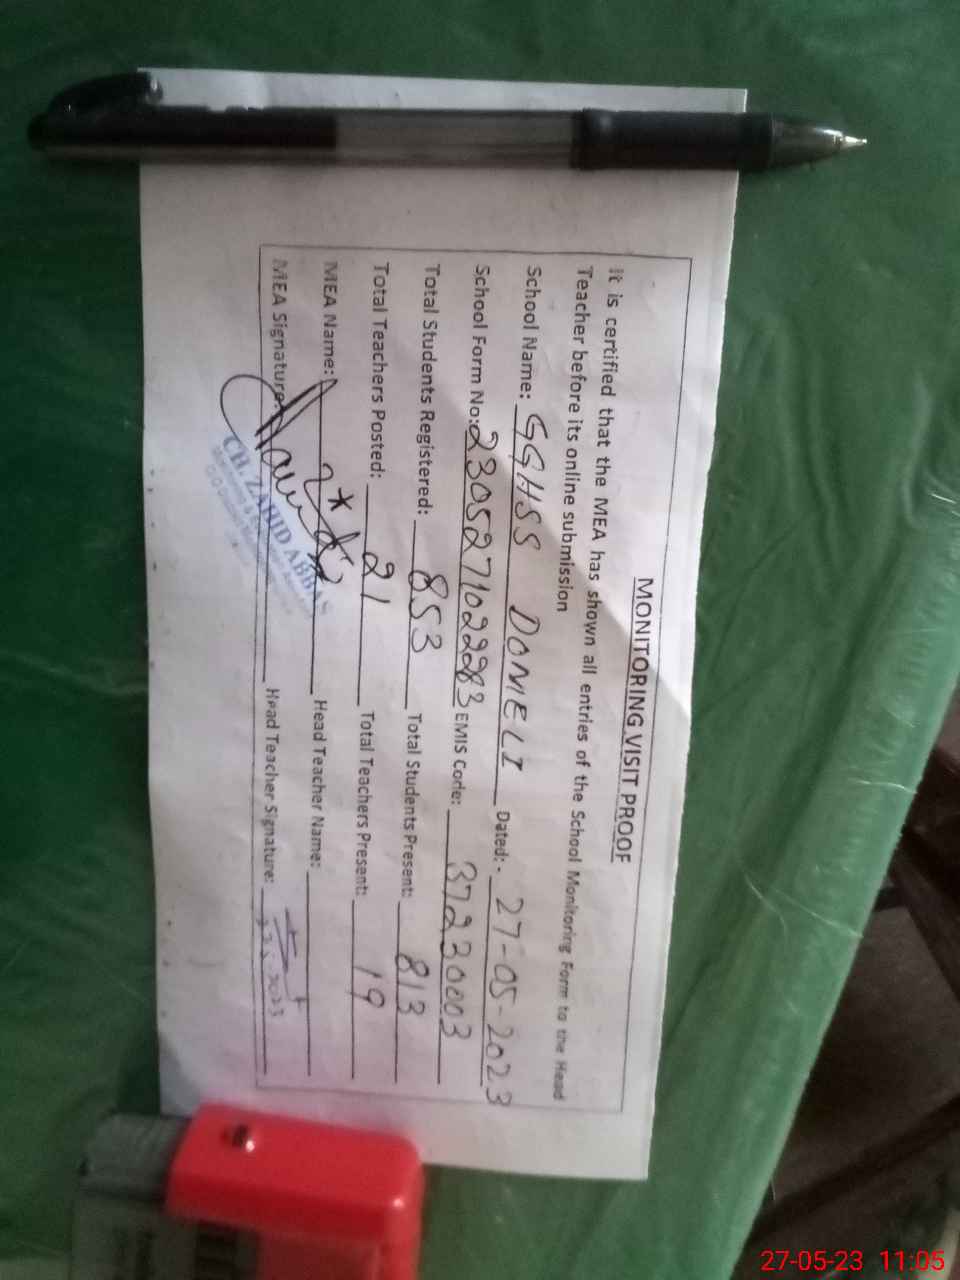 MONITORING VISIT PROOF
It is certified that the MEA has shown all entries of the School Monitoring Form to the Head
Teacher before its online submission
School Name: GGHSS DOMELI Dated:- 27-05-2023
School Form No: 2305271022283 EMIS Code: 37230003
Total Students Registered: 853 Total Students Present: 813
Total Teachers Posted: 21 Total Teachers Present: 19
MEA Name: Head Teacher Name:
MEA Signature: Head Teacher Signature:
CH. ZAHID ABBAS
27-05-23 11:05